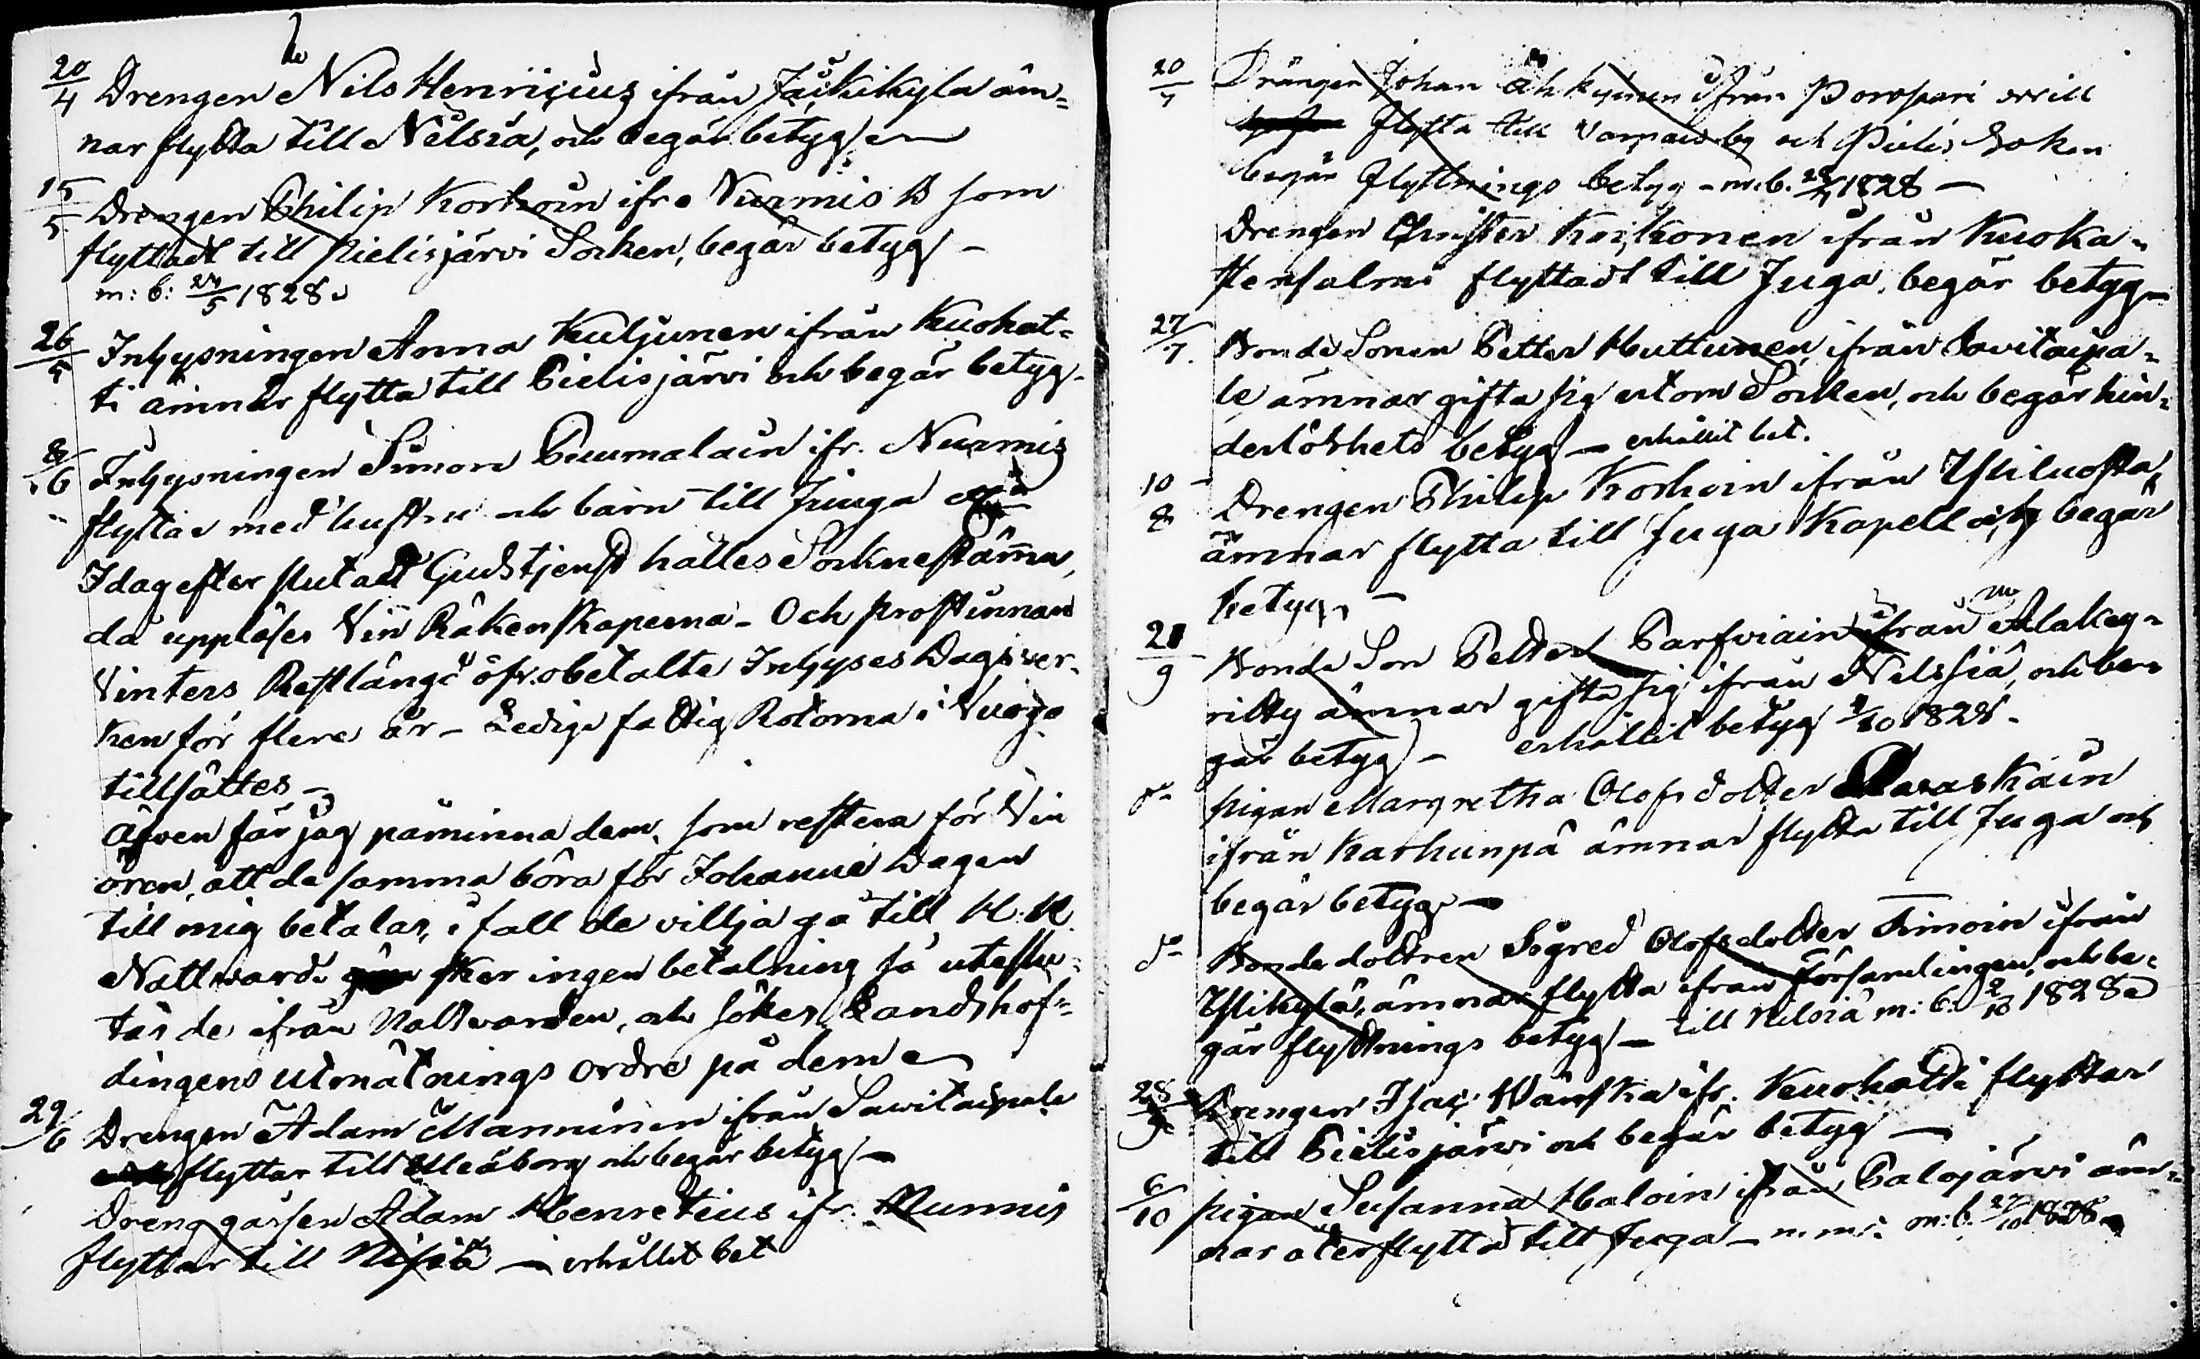 20/4 Drengen Nils Henricius ifrån Jäskikyla äm=
nar flytta till Nilsiä, och begär betyg
15/5 Drengen Philip Korhoin ifr Nurmis B som
flyttadt till Pielisjärvi Socken, begär betyg –
m: b: 24/5 1828
26/5 Inhysningen Anna Kuljunen ifrån Kuohat=
ti ämnar flytta till Pielisjärvi och begär betyg –
8/6 Inhysningen Simon Puumalain ifr. Nurmis
flyttar med hustru och barn till Juuga
I dag efter slutadt Gudstjenst hålles Sockne stämma,
då uppläses Vin Räkenskaperna – Och prostinnan
Vinters Restlängd öfr. obetalte Inhyses Dagsver=
ken för flere år – Ledige fattig Rotorna i
tillsättes –
Äfven får jag påminna dem, som restera för Vin
ören, att de samma böra för Johanni Dagen
till mig betalas, i fall de villja gå till H. H.
Nattvard sker ingen betalning så uteslu=
tas de ifrån Nattvarden, och sökes Landshöf=
dingens utmätnings ordre på dem
29/6 Drengen Adam Manninen ifrån Savitaipale
flyttar till Uleåborg och begär betyg –
Dreng gåssen Adam Henretius ifr. Nurmis
flyttar till Nilsiä – erhållit bet
20/7 Drängen Johan ifrån Porosari will
flytta till by och Pielis Soken
begär flyttnings betyg – m: b. 28/7 1828 –
Drengen Christer Korkonen ifrån Kuoka=
stensalmi flyttadt till Juga, begär betyg –
27/7. Bonde Sonen Petter Huttunen ifrån Savitaipa=
le ämnar gifta sig utom Socken, och begär hin=
derlöshets betyg – erhållit bet.
10/8 Drengen Philip Korhoin ifrån Yliluosta,
ämnar flytta till Juga Kapell och begär
betyg –
21/9 Bonde Son Petter Parfviain ifrån Alakey=
ritty ämnar gifta sig ifrån Nilsiä, och be=
gär betyg – erhållit betyg 2/10 1828.
do pigan Margretha Olofs dotter Paraskain
ifrån Karhunpä ämnar flytta till Juga och
begär betyg –
do Bonde dottren Sigred Olofsdotter Timoin ifrån
Ylikylä, ämnar flytta ifrån församlingen, och be=
gär flyttnings betyg – till Nilsiä m: b: 2/10 1828
28/9 Drengen Isac Wänskä ifr. Kuohatti flyttar
till Pielisjärvi och begär betyg –
6/10 pigan Susanna Haloin ifrån Palojärvi äm=
nar återflytta till Juga – m: b. 27/10 1828